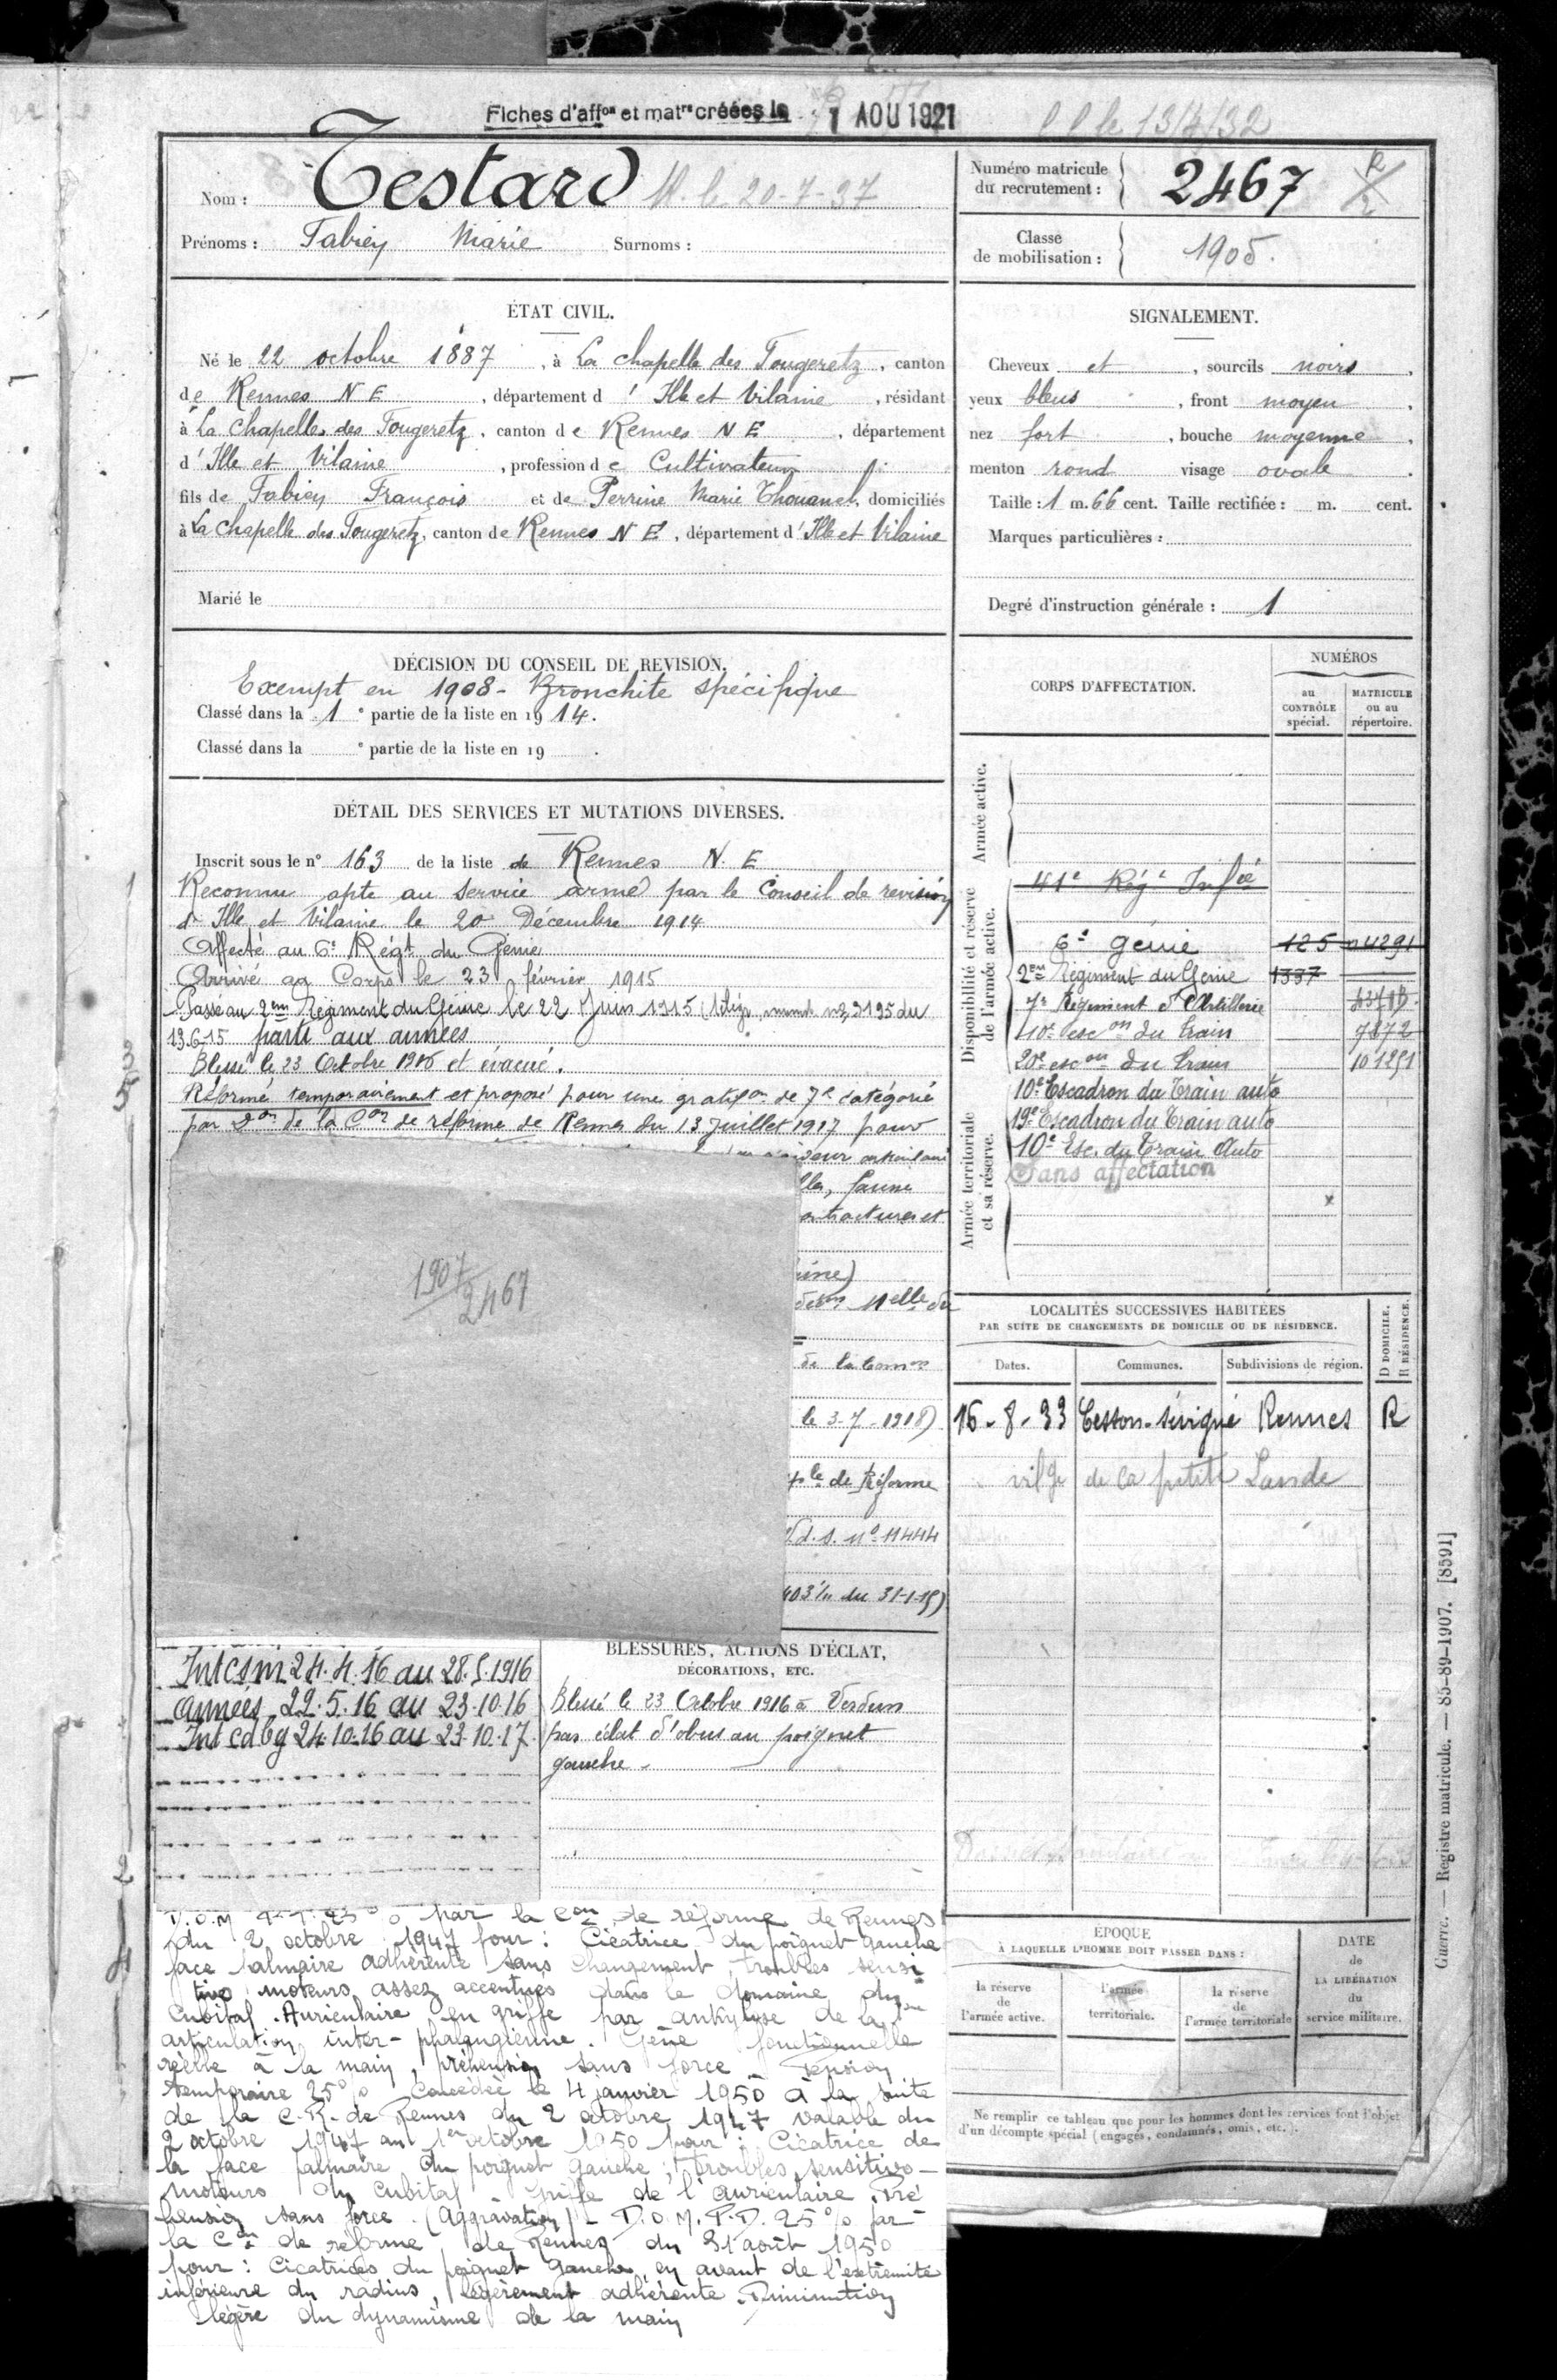 Fiches d'affon et matre créées le 1 AOU 1921
le 13/4/32
Nom : Testard
20-7-37
Prénoms : Fabien Marie Surnoms :
Numéro matricule du recrutement : 2467
Classe de mobilisation : 1905.
ÉTAT CIVIL.
Né le 22 octobre 1887, à La Chapelle des Fougeretz, canton
de Rennes N E, département d' Ille et Vilaine, résidant
à La Chapelle des Fougeretz, canton de Rennes N E, département
d' Ille et Vilaine, profession de Cultivateur
fils de Fabien François et de Perrine Marie Thouanel, domiciliés
à La Chapelle des Fougeretz, canton de Rennes N E, département d' Ille et Vilaine
Marié le
SIGNALEMENT.
Cheveux et, sourcils noirs,
yeux bleus, front moyen,
nez fort, bouche moyenne,
menton rond visage ovale.
Taille : 1 m. 66 cent. Taille rectifiée : m. cent.
Marques particulières :
Degré d'instruction générale : 1
DÉCISION DU CONSEIL DE REVISION.
Exempt en 1908 - Bronchite spécifique
Classé dans la 1e partie de la liste en 1914.
Classé dans la e partie de la liste en 19 .
DÉTAIL DES SERVICES ET MUTATIONS DIVERSES.
Inscrit sous le n° 163 de la liste de Rennes N. E
Reconnu apte au service armé par le Conseil de revision
d' Ille et Vilaine le 20 Décembre 1914
Affecté au 6e Régt du Génie
Arrivé au Corps le 23 février 1915
Passé au 2em Régiment du Génie le 22 Juin 1915
13.6.15 parti aux armées
Blessé le 23 Octobre 1916 et évacué.
Réformé temporairement et proposé pour une gratifon de 7e catégorie
par Don de la Con de réforme de Rennes du 13 Juillet 1917 pour
1907
2467
le 3-7-1918)
de Réforme
n° 11444
du 31-1-19)
CORPS D'AFFECTATION.
NUMÉROS
au CONTRÔLE spécial.
MATRICULE ou au répertoire.
Armée active.
Disponibilité et réserve de l'armée active.
41e Régt Infie
6e génie 125 4291
2em Régiment du Génie 1337
7e Régiment d'Artillerie
10e escon du train 7872
20e escon du train 101251
10e Escadron du Train auto
19e Escadron du Train auto
10e Esc. du Train Auto
Sans affectation
Armée territoriale et sa réserve.
LOCALITÉS SUCCESSIVES HABITÉES
PAR SUITE DE CHANGEMENTS DE DOMICILE OU DE RÉSIDENCE.
Dates. Communes. Subdivisions de région. D DOMICILE. R RÉSIDENCE.
16-8-33 Cesson-Sévigné Rennes R
vilge de la petite Lande
Int csm 24.4.16 au 28.5.1916
armées 22.5.16 au 23.10.16
Int cdbg 24.10.16 au 23.10.17.
BLESSURES, ACTIONS D'ÉCLAT,
DÉCORATIONS, ETC.
Blessé le 23 Octobre 1916 à Verdun
par éclat d'obus au poignet
gauche
par la Con de réforme de Rennes
du 2 octobre 1947 pour : Cicatrice du poignet gauche
face palmaire adhérente sans changement, troubles sensi
tivo moteurs assez accentués dans le domaine du
cubital. Auriculaire en griffe par ankylose de la
articulation inter-phalangienne. Gêne fonctionnelle
réelle à la main, préhension sans force Pension
temporaire 25% concédée le 4 janvier 1950 à la suite
de la C.R. de Rennes du 2 octobre 1947 valable du
2 octobre 1947 au 1er octobre 1950 pour : Cicatrice de
la face palmaire du poignet gauche ; troubles sensitivo-
moteurs du cubital. griffe de l'auriculaire. Pré
hension sans force. (Aggravation) - D.O.M. P.D. 25% par
la Con de réforme de Rennes du 31 août 1950
pour : Cicatrices du poignet gauche, en avant de l'extrémité
inférieure du radius, légèrement adhérente. Diminution
légère du dynamisme de la main
ÉPOQUE
À LAQUELLE L'HOMME DOIT PASSER DANS :
la réserve de l'armée active.
l'armée territoriale.
la réserve de l'armée territoriale
DATE de LA LIBÉRATION du service militaire.
Ne remplir ce tableau que pour les hommes dont les services font l'objet
d'un décompte spécial (engagés, condamnés, omis, etc.).
Guerre. — Registre matricule. — 85-89-1907. [8591]